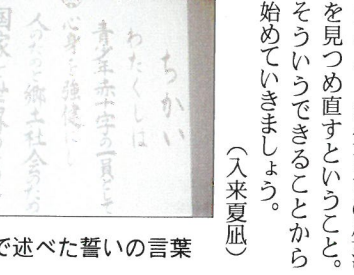 を見つめ直すということ。
そういうできることから
始めていきましょう。
（入来夏凪）
ちかい
わたくしは
青少年赤十字の一員として
心身を強健にし
郷土社会
で述べた誓いの言葉